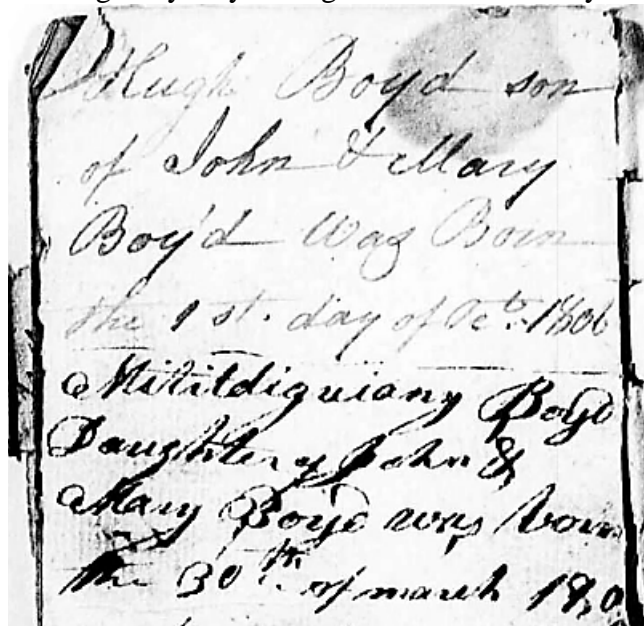 Hugh Boyd son
of John & Mary
Boy'd Was Born
the 1 st. day of Oct. 1806
Boyd
Daughter of John &
Mary Boyd was born
the 30th of march